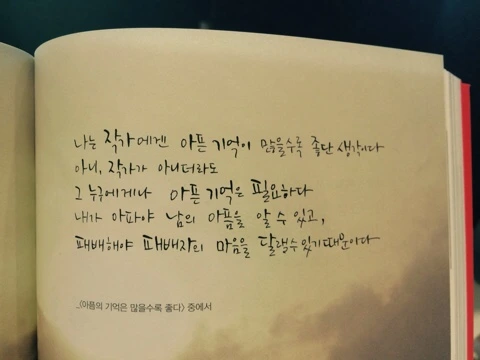 나는 작가에겐 아픈 기억이 많을수록 좋단 생각이다
아니, 작가가 아니더라도
그 누구에게나 아픈 기억은 필요하다
내가 아파야 남의 아픔을 알 수 있고,
패배해야 패배자의 마음을 달랠 수 있기 때문이다
_<아픔의 기억은 많을수록 좋다> 중에서